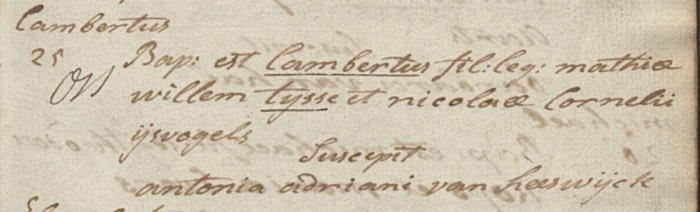 Lambertus
25 Bap: est Lambertus fil: leg: mathiæ
Oss willem tysse et nicolaæ Cornelii
ijsvogels
Suscepit
antonia adriani van heeswijck